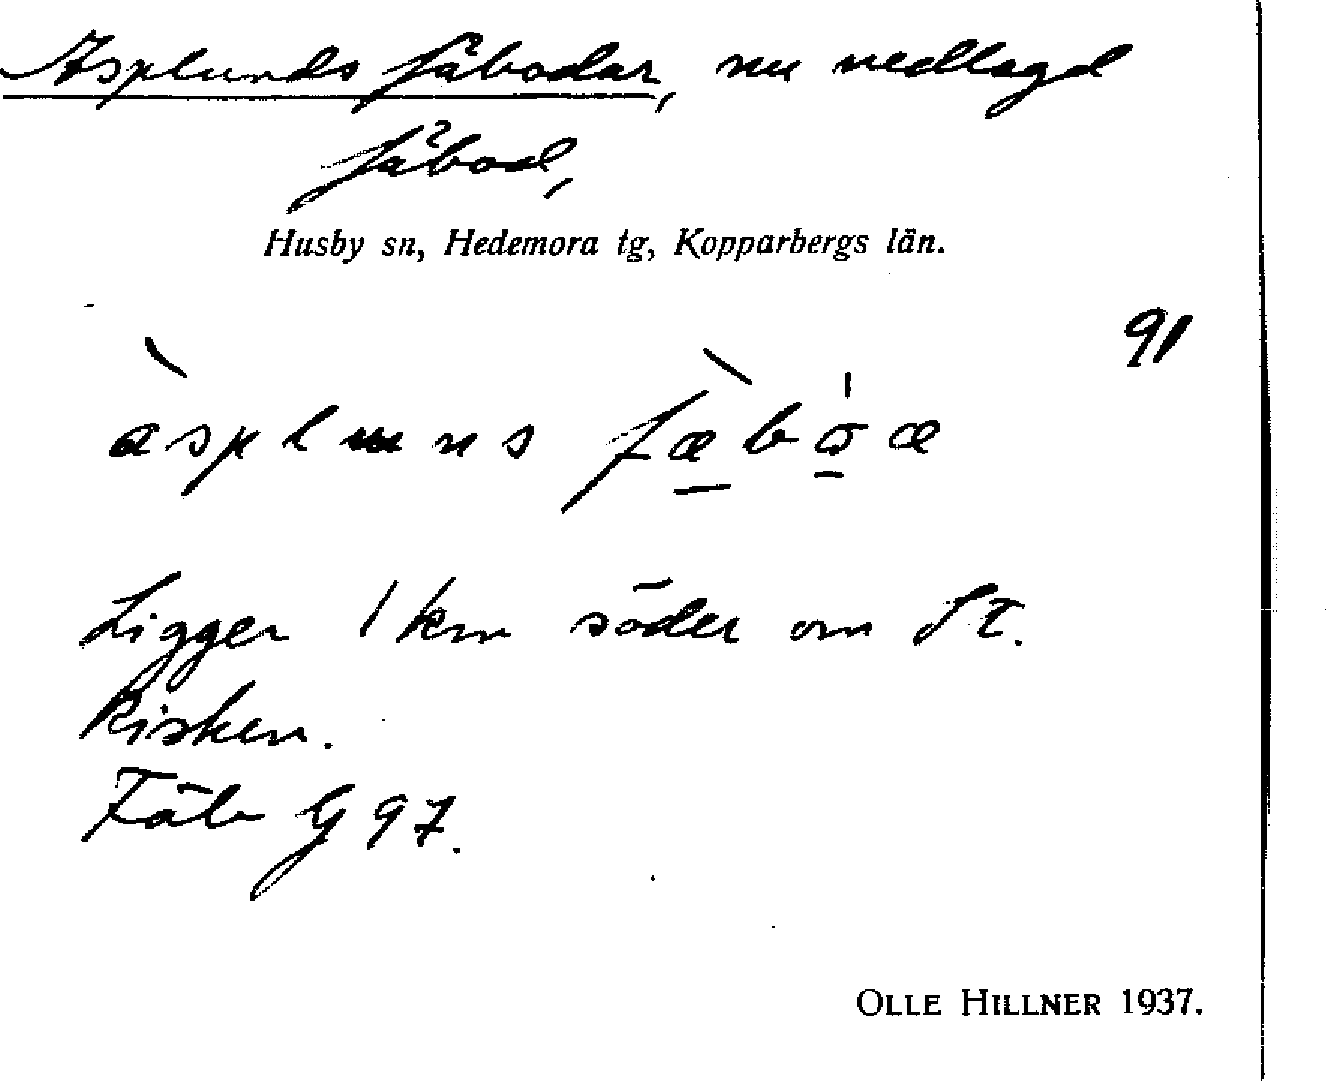 Asplunds fäbodar, nu nedlagd
fäbod,
Husby sn, Hedemora tg, Kopparbergs län.
91
àspluns fæ̀bo̅æ
Ligger 1 km söder om St.
Risken.
Täb G 97.
OLLE HILLNER 1937.